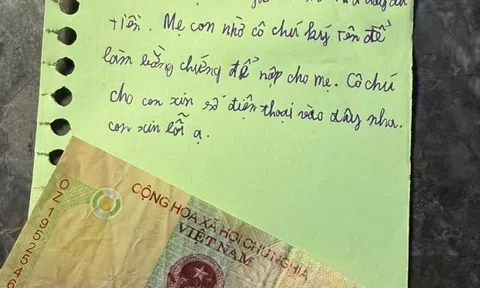 tiền. Mẹ con nhờ cô chú ký tên để
làm bằng chứng để nộp cho mẹ. Cô chú
cho con xin số điện thoại vào đây nha.
con xin lỗi ạ.
CỘNG HOÀ XÃ HỘI CHỦ NGHĨA
VIỆT NAM
02195254